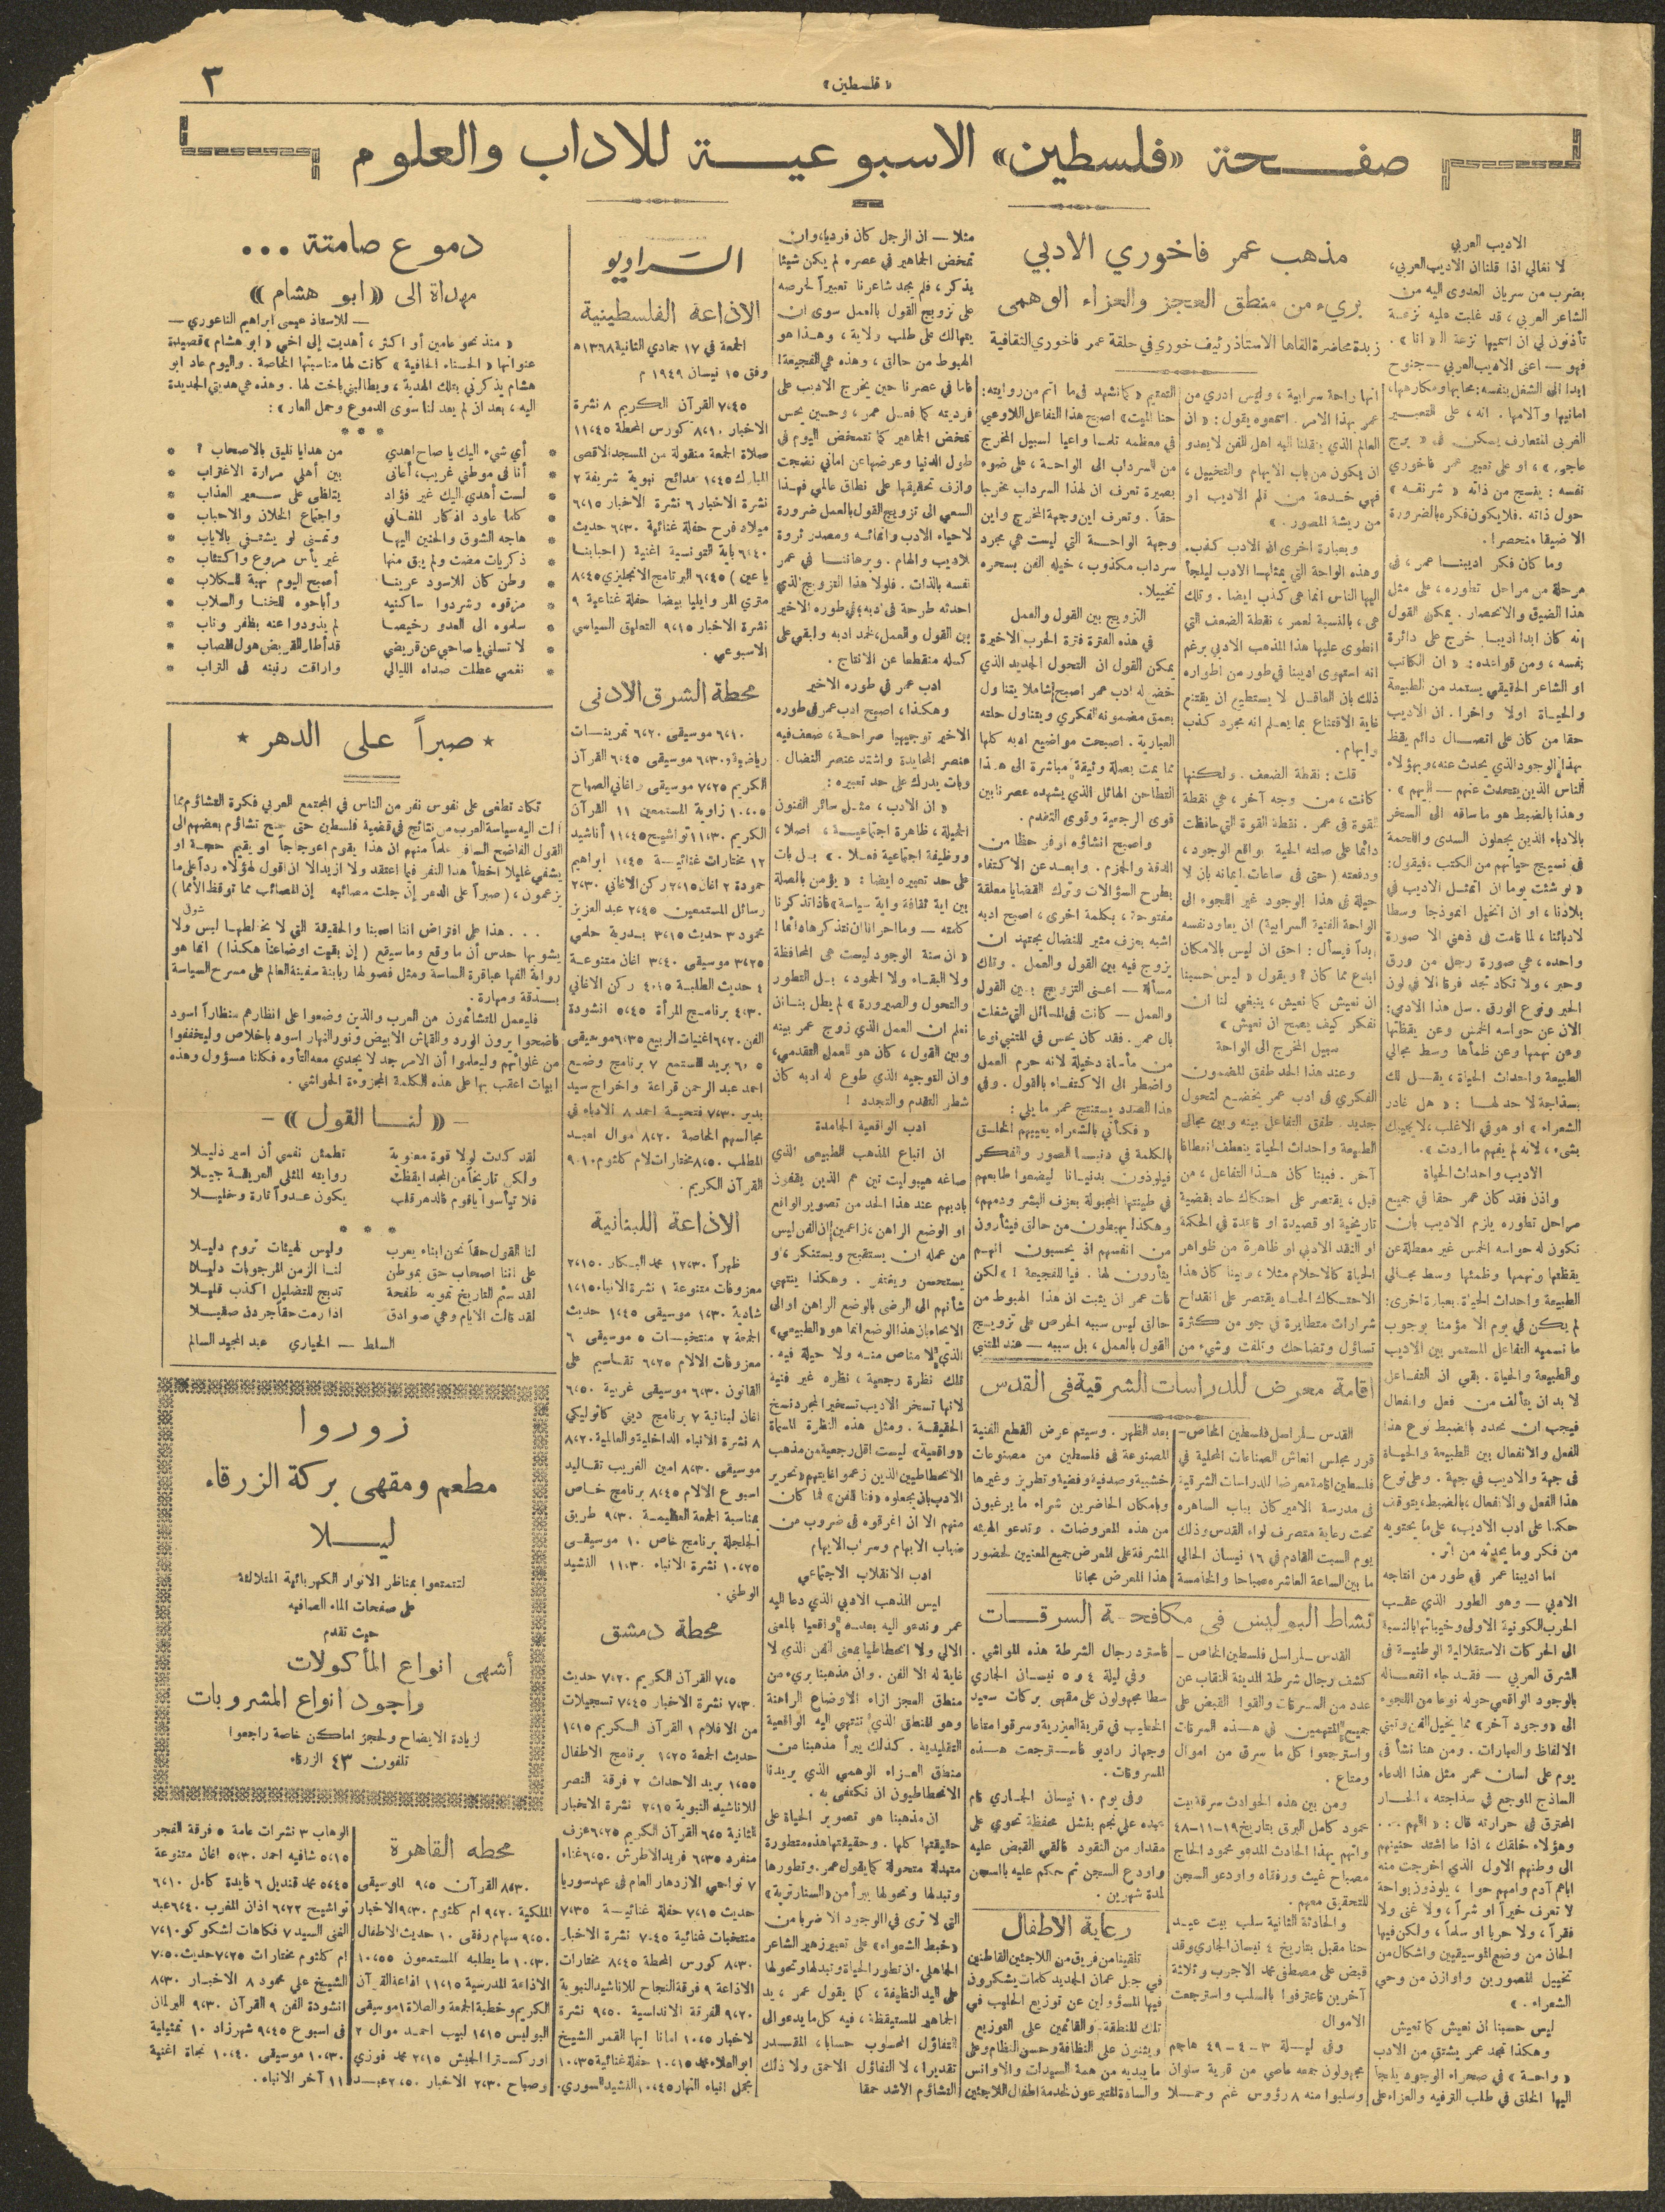 ٣
« فلسطين »
صفحة «فلسطين» الاسبوعية للاداب والعلوم
مذهب عمر فاخوري الادبي
بريء من منطق العجز والعزاء الوهمي
زبدة محاضرة القاها الاستاذ رئيف خوري في حلقة عمر فاخوري الثقافية
الاديب العربي
لا نغالي اذا قلنا ان الاديب العربي،
يضرب من سريان العدوى اليه من
الشاعر العربي، قد غلبت عليه نزعة
تأذنون لي ان اسميها نزعة الـ «انا».
فهو — اعني الاديب العربي — جنوح
ابدا الى الشغل بنفسه: محابها ومكارهها،
امانيها وآلامها. انه، على التعبير
الغربي المتعارف يسكن في «برج
عاجي»، او على تعبير عمر فاخوري
نفسه: ينسج من ذاته «شرنقة»
حول ذاته. فلا يكون فكره بالضرورة
الا ضيقا منحصرا.
وما كان فكر اديبنا عمر، في
مرحلة من مراحل تطوره، على مثل
هذا الضيق والانحصار. يمكن القول
انه كان ابدا اديبا خرج على دائرة
نفسه، ومن قواعده: «ان الكاتب
او الشاعر الحقيقي يستمد من الطبيعة
والحياة اولا واخرا. ان الاديب
حقا من كان على اتصال دائم يقظ
بهذا الوجود الذي يحدث عنه، وبهؤلاء
الناس الذين يتحدث عنهم — اليهم».
وهذا بالضبط هو ما ساقه الى السخر
بالادباء الذين يجعلون السدى واللحمة
في نسيج حياتهم من الكتب، فيقول:
«لو شئت يوما ان اتمثل الاديب في
بلادنا، او ان اتخيل انموذجا وسطا
لادبائنا، لما قامت في ذهني الا صورة
واحده، هي صورة رجل من ورق
وحبر، ولا نكاد نجد فرقا الا في لون
الحبر ونوع الورق. سل هذا الادمي:
الان عن حواسه الخمس وعن يقظاتها
وعن نهمها وعن ظمأها وسط مجالي
الطبيعة واحداث الحياة، يقل لك
بسذاجة لا حد لها: «هل غادر
الشعراء» او هو في الاغلب، لا يجيبك
بشيء، لانه لم يفهم ما اردت».
الاديب واحداث الحياة
واذن فقد كان عمر حقا في جميع
مراحل تطوره يلزم الاديب بأن
تكون له حواسه الخمس غير معطلة عن
يقظتها ونهمها وظمئها وسط مجالي
الطبيعة واحداث الحياة. بعبارة اخرى:
لم يكن في يوم الا مؤمنا بوجوب
ما نسميه التفاعل المستمر بين الاديب
والطبيعة والحياة. بقي ان التفاعل
لا بد ان يتألف من فعل وانفعال
فيجب ان نحدد بالضبط نوع هذا
الفعل والانفعال بين الطبيعة والحياة
في جهة والاديب في جهة. وعلى نوع
هذا الفعل والانفعال، بالضبط، يتوقف
حكمنا على ادب الاديب، على ما يحتويه
من فكر وما يحدثه من اثر.
اما اديبنا عمر في طور من انتاجه
الادبي — وهو الطور الذي عقب
الحرب الكونية الاولى وخيباتها بالنسبة
الى الحركات الاستقلالية الوطنية في
الشرق العربي — فقد جاء انفعاله
بالوجود الواقعي حوله نوعا من اللجوء
الى «وجود آخر» مما يخيل الفن وتبني
الالفاظ والعبارات. ومن هنا نشأ في
يوم على لسان عمر مثل هذا الدعاء
الساذج الموجع في سذاجته، الحار
المحترق في حرارته قال: «اللهم...
وهؤلاء خلقك، اذا ما اشتد حنينهم
الى وطنهم الاول الذي اخرجت منه
اباهم آدم وامهم حوا، يلوذون بواحة
لا تعرف خيراً او شراً، ولا غنى ولا
فقراً، ولا حربا او سلماً، ولكن فيها
الحان من وضع الموسيقيين واشكال من
تخييل المصورين واوزان من وحي
الشعراء.»
ليس حسبنا ان نعيش كما نعيش
وهكذا نجد عمر يشتق من الادب
«واحة» في صحراء الوجود يلجأ
اليها الخلق في طلب الترفيه والعزاء على
انها راحة سرابية، وليس ادري من
عمر بهذا الامر. اسمعوه يقول: «ان
العالم الذي ينقلنا اليه اهل الفن لا يعدو
ان يكون من باب الايهام والتخييل،
فهي خدعة من قلم الاديب او
من ريشة المصور.»
وبعبارة اخرى ان الادب كذب.
وهذه الواحة التي يمثلها الادب ليلجأ
اليها الناس انما هي كذب ايضا. وتلك
هي، بالنسبة لعمر، نقطة الضعف التي
انطوى عليها هذا المذهب الادبي برغم
انه استهوى اديبنا في طور من اطواره
ذلك بان العاقل لا يستطيع ان يقتنع
غاية الاقتناع بما يعلم انه مجرد كذب
وايهام.
قلت: نقطة الضعف. ولكنها
كانت، من وجه آخر، هي نقطة
القوة في عمر. نقطة القوة التي حافظت
دائما على صلته الحية بواقع الوجود،
ودفعته (حتى في ساعات ايمانه بان لا
حيلة في هذا الوجود غير اللجوء الى
الواحة الفنية السرابية) ان يعاود نفسه
ابداً فيسأل: احق ان ليس بالامكان
ابدع مما كان؟ ويقول «ليس حسبنا
ان نعيش كما نعيش، ينبغي لنا ان
نفكر كيف يصح ان نعيش»
سبيل المخرج الى الواحة
وعند هذا الحد طفق المضمون
الفكري في ادب عمر يخضع لتحول
جديد. طفق التفاعل بينه وبين مجالي
الطبيعة واحداث الحياة ينعطف انعطافا
آخر. فبينا كان هذا التفاعل، من
قبل، يقتصر على احتكاك حاد بقضية
تاريخية او قصيدة او قاعدة في الحكمة
او النقد الادبي او ظاهرة من ظواهر
الحياة كالاحلام مثلا، وبينا كان هذا
الاحتكاك الحاد يقتصر على انقداح
شرارات متطايرة في جو من كثرة
تساؤل وتضاحك وتلفت وشيء من
التعتيم «كما نشهد في ما اتم من روايته:
حنا الميت» اصبح هذا التفاعل اللاوعي
في معظمه تلمسا واعيا لسبيل المخرج
من السرداب الى الواحة، على ضوء
بصيرة تعرف ان لهذا السرداب مخرجا
حقاً. وتعرف اين وجهة المخرج واين
وجهة الواحة التي ليست هي مجرد
سرداب مكذوب، خيله الفن بسحره
تخييلا.
التزويج بين القول والعمل
في هذه الفترة فترة الحرب الاخيرة
يمكن القول ان التحول الجديد الذي
خضع له ادب عمر اصبح شاملا يتناول
بعمق مضمونه الفكري ويتناول حلته
العبارية. اصبحت مواضيع ادبه كلها
مما يمت بصلة وثيقة مباشرة الى هذا
التطاحن الهائل الذي يشهده عصرنا بين
قوى الرجعية وقوى التقدم.
واصبح انشاؤه اوفر حظا من
الدقة والجزم. وابعد عن الاكتفاء
بطرح السؤالات وترك القضايا معلقة
مفتوحة، بكلمة اخرى، اصبح ادبه
اشبه بعزف مثير للنضال يجتهد ان
يزوج فيه بين القول والعمل. وتلك
مسألة — اعني التزويج بين القول
والعمل — كانت في المسائل التي شغلت
بال عمر. فقد كان يحس في المتنبي نوعا
من مأساة دخيلة لانه حرم العمل
واضطر الى الاكتفاء بالقول. وفي
هذا الصدد يستنتج عمر ما يلي:
«فكأني بالشعراء يعييهم الخلق
بالكلمة في دنيا الصور والفكر
فيلوذون بدنيانا ليضعوا طابعهم
في طينتها المجبولة بعزف البشر ودمهم،
وهكذا يهبطون من حالق فيثأرون
من انفسهم اذ يحسبون انهم
يثأرون لها. فيا للفجيعة!» لكن
فات عمر ان يثبت ان هذا الهبوط من
حالق ليس سببه الحرص على تزويج
القول بالعمل، بل سببه — عند المتنبي
مثلا — ان الرجل كان فرديا، وان
تمخض الجماهير في عصره لم يكن شيئا
يذكر، فلم يجد شاعرنا تعبيراً لحرصه
على تزويج القول بالعمل سوى ان
يتهالك على طلب ولاية، وهذا هو
الهبوط من حالق، وهذه هي الفجيعة!
فاما في عصرنا حين يخرج الاديب على
فرديته كما فعل عمر، وحين يحس
تمخض الجماهير كما تتمخض اليوم في
طول الدنيا وعرضها عن اماني نضجت
وازف تحقيقها على نطاق عالمي فهذا
السعي الى تزويج القول بالعمل ضرورة
لاحياء الادب وانمائه ومصدر ثروة
لاديب والهام. وبرهاننا في عمر
نفسه بالذات. فلولا هذا التزويج الذي
احدثه طرحة في ادبه، في طوره الاخير
بين القول والعمل، لجمد ادبه وابقي على
كسله منقطعا عن الانتاج.
ادب عمر في طوره الاخير
وهكذا، اصبح ادب عمر في طوره
الاخير توجيهيا صراحة، ضعف فيه
عنصر المحايدة واشتد عنصر النضال.
وبات يدرك على حد تعبيره:
«ان الادب، مثل سائر الفنون
الجميلة، ظاهرة اجتماعية، اصلا،
ووظيفة اجتماعية فعلا.» بل بات
على حد تعبيره ايضا: «يؤمن بالصلة
بين اية ثقافة واية سياسة» فاذا تذكرنا
كلمته — وما احرانا ان نتذكرها دائما!
«ان سنة الوجود ليست هي المحافظة
ولا البقاء ولا الجمود، بل التطور
والتحول والصيرورة» لم يطل بنا ان
نعلم ان العمل الذي زوج عمر بينه
وبين القول، كان هو العمل التقدمي،
وان التوجيه الذي طوع له ادبه كان
شطر التقدم والتجدد!
ادب الواقعية الجامدة
ان اتباع المذهب الطبيعي الذي
صاغه هيبوليت تين هم الذين يقفون
بادبهم عند هذا الحد من تصوير الواقع
او الوضع الراهن، زاعمين ان الفن ليس
من عمله ان يستقبح ويستنكر، او
يستحسن ويغتفر. وهكذا ينتهي
شأنهم الى الرضى بالوضع الراهن او الى
الايحاء بان هذا الوضع انما هو «الطبيعي»
الذي لا مناص منه ولا حيلة فيه.
تلك نظرة رجعية، نظره غير فنية
لانها تسخر الاديب تسخيرا لمجرد نسخ
الحقيقة. ومثل هذه النظرة المسماة
«واقعية» ليست اقل رجعية من مذهب
الانحطاطيين الذين زعموا غايتهم «تحرير
الادب بان يجعلوه «فنا للفن» فما كان
منهم الا ان اغرقوه في ضروب من
ضباب الابهام وسراب الايهام
ادب الانقلاب الاجتماعي
ليس المذهب الادبي الذي دعا اليه
عمر وندعو اليه بعده واقعيا بالمعنى
الالي ولا انحطاطيا بمعنى الفن الذي لا
غاية له الا الفن. وان مذهبنا بريء من
منطق العجز ازاء الاوضاع الراهنة
وهو المنطق الذي تنتهي اليه الواقعية
التقليدية. كذلك يبرأ مذهبنا من
منطق العزاء الوهمي الذي يريدنا
الانحطاطيون ان نكتفي به.
ان مذهبنا هو تصوير الحياة على
حقيقتها كلها. وحقيقتها هذه متطورة
متبدلة متحولة كما يقول عمر. وتطورها
وتبدلها وتحولها يبرأ من «السنارتوبة»
التي لا ترى في الوجود الا ضربا من
«خبط الشعواء» على تعبير زهير الشاعر
الجاهلي. ان تطور الحياة وتبدلها وتحولها
على اليد النظيفة، كما يقول عمر، يد
الجماهير المستيقظة، فيه كل ما يدعو الى
التفاؤل المحسوب حسابا، المقدر
تقديرا، لا التفاؤل الاحمق ولا ذلك
التشاؤم الاشد حمقا
اقامة معرض للدراسات الشرقية في القدس
القدس — لمراسل فلسطين الخاص —
قرر مجلس انعاش الصناعات المحلية في
فلسطين اقامة معرضا للدراسات الشرقية
في مدرسة الاميركان بباب الساهره
تحت رعاية متصرف لواء القدس وذلك
يوم السبت القادم في ١٦ نيسان الحالي
ما بين الساعة العاشره صباحا والخامسة
بعد الظهر. وسيتم عرض القطع الفنية
المصنوعة في فلسطين من مصنوعات
خشبية وصدفية وفضية وتطريز وغيرها
وبامكان الحاضرين شراء ما يرغبون
من هذه المعروضات. وتدعو الهيئه
المشرفة على المعرض جميع المعنيين لحضور
هذا المعرض مجانا
نشاط البوليس في مكافحة السرقات
القدس — لمراسل فلسطين الخاص —
كشف رجال شرطة المدينة النقاب عن
عدد من السرقات والقوا القبض على
جميع المتهمين في هذه السرقات
واسترجعوا كل ما سرق من اموال
ومتاع.
ومن بين هذه الحوادث سرقة بيت
محمود كامل البرق بتاريخ ١٩-١١-٤٨
واتهم بهذا الحادث المدعو محمود الحاج
مصباح غيث ورفقاه واودعو السجن
للتحقيق معهم.
والحادثة الثانية سلب بيت عيد
حنا مقبل بتاريخ ٤ نيسان الجاري وقد
قبض على مصطفى محمد الاجرب وثلاثة
آخرين فاعترفوا بالسلب واسترجعت
الاموال
وفي ليلة ٣-٤-٤٩ هاجم
مجهولون جمعه عاصي من قرية سلوان
وسلبوا منه ٨ رؤوس غنم وحملا
فاسترد رجال الشرطة هذه المواشي.
وفي ليلة ٤ و ٥ نيسان الجاري
سطا مجهولون على مقهى بركات سعيد
الخطيب في قرية العيزرية وسرقوا متاعا
وجهاز راديو فاسترجعت هذه
المسروقات.
وفي يوم ١٠ نيسان الجاري قام
عبده علي نجم بنشل محفظة تحوي على
مقدار من النقود فالقي القبض عليه
واودع السجن ثم حكم عليه بالسجن
لمدة شهرين.
رعاية الاطفال
تلقينا من فريق من اللاجئين القاطنين
في جبل عمان الجديد كلمات يشكرون
فيها المسؤولين عن توزيع الحليب في
تلك المنطقة والقائمين على التوزيع
ويثنون على النظافة وحسن النظام وعلى
ما يبديه من همة السيدات والاوانس
والسادة المتبرعون لخدمة اطفال اللاجئين
الراديو
الاذاعة الفلسطينية
الجمعة في ١٧ جمادي الثانية ١٣٦٨ هـ
وفق ١٥ نيسان ١٩٤٩ م
٧،٤٥ القرآن الكريم ٨ نشرة
الاخبار ٨،١٠ كورس المحطة ١١،٤٥
صلاة الجمعة منقولة من المسجد الاقصى
المبارك ١،٤٥ مدائح نبوية شريفة ٢
نشرة الاخبار ٦ نشرة الاخبار ٦،١٥
ميلاد فرح حفلة غنائية ٦،٣٠ حديث
٦،٤٠ باية التونسية اغنية (احبابنا
يا عين) ٦،٤٥ البرنامج الانجليزي ٨،٤٥
متري المر وايليا بيضا حفلة غنائية ٩
نشرة الاخبار ٩،١٥ التعليق السياسي
الاسبوعي.
محطة الشرق الادنى
٦،١٠ موسيقى ٦،٢٠ تمرينات
رياضية ٦،٣٠ موسيقى ٦،٤٥ القرآن
الكريم ٧،٢٥ موسيقى واغاني الصباح
١٠،٠٥ زاوية المستمعين ١١ القرآن
الكريم ١١،٣٠ تواشيح ١١،٤٥ أناشيد
١٢ مختارات غنائية ١،٤٥ ابراهيم
حمودة ٢ اغان ٢،١٥ ركن الاغاني ٢،٣٠
رسائل المستمعين ٢،٤٥ عبد العزيز
محمود ٣ حديث ٣،١٥ بدرية حلمي
٣،٢٥ موسيقى ٣،٤٠ اغان متنوعة
٤ حديث الطلبة ٤،١٥ ركن الاغاني
٤،٣٠ برنامج المرأة ٥،٤٥ انشودة
الفن ٦،٢٠ اغنيات الربيع ٦،٣٥ موسيقى
٦،٥٠ بريد المستمع ٧ برنامج وضع
احمد عبد الرحمن قراعة واخراج سيد
بدير ٧،٣٠ فتحية احمد ٨ الادباء في
مجالسهم الخاصة ٨،٢٠ موال لعبد
المطلب ٨،٥٠ مختارات لام كلثوم ٩،١٠
القرآن الكريم.
الاذاعة اللبنانية
ظهراً ١٢،٣٠ محمد البكار ٢،١٥
معزوفات متنوعة ١ نشرة الانباء ١،١٥
شادية ١،٣٠ موسيقى ١،٤٥ حديث
الجمعة ٢ منتخبات ٥ موسيقى ٦
معزوفات الالام ٦،٢٥ تقاسيم على
القانون ٦،٣٠ موسيقى غربية ٦،٥٠
اغان لبنانية ٧ برنامج ديني كاثوليكي
٨ نشرة الانباء الداخلية والعالمية ٨،٢٠
موسيقى ٨،٣٠ امين الغريب تقاليد
اسبوع الالام ٨،٤٥ برنامج خاص
بمناسبة الجمعة العظيمة ٩،٣٠ طريق
الجلجلة برنامج خاص ١٠ موسيقى
١٠،٢٥ نشرة الانباء ١١،٣٠ النشيد
الوطني.
محطة دمشق
٧،٥ القرآن الكريم ٧،٢٠ حديث
٧،٣٠ نشرة الاخبار ٧،٤٥ تسجيلات
من الافلام ١ القرآن الكريم ١،١٥
حديث الجمعة ١،٢٥ برنامج الاطفال
١،٥٥ بريد الاحداث ٢ فرقة النصر
للاناشيد النبوية ٢،١٥ نشرة الاخبار
الثانية ٦،٥ القرآن الكريم ٦،٢٥ عزف
منفرد ٦،٣٥ فريد الاطرش ٦،٥٠ غناء
٧ نواحي الازدهار العام في عهد سوريا
حديث ٧،١٥ حفلة غنائية ٧،٣٥
منتخبات غنائية ٧،٤٥ نشرة الاخبار
٨،٣٠ كورس المحطة ٨،٤٥ مختارات
الاذاعة ٩ فرقة النجاح للاناشيد النبوية
٩،٢٠ الفرقة الاندلسية ٩،٥٠ نشرة
الاخبار ١٠،٥ امانا ايها القمر الشيخ
ابو العلاء محمد ١٠،١٥ حفلة غنائية ١٠،٣٥
مجمل انباء النهار ١٠،٤٥ النشيد السوري.
دموع صامتة ...
مهداة الى «ابو هشام»
— للاستاذ عيسى ابراهيم الناعوري —
« منذ نحو عامين أو اكثر، أهديت إلى اخي «ابو هشام» قصيدة
عنوانها «الحسناء الخافية» كانت لها مناسبتها الخاصة. واليوم عاد ابو
هشام يذكرني بتلك الهدية، ويطالبني بأخت لها. وهذه هي هديتي الجديدة
اليه، بعد ان لم يعد لنا سوى الدموع وحمل العار»:
* * *
* أي شيء اليك يا صاح اهدي من هدايا تليق بالاصحاب؟ *
* أنا في موطني غريب، أعاني بين أهلي مرارة الاغتراب *
* لست أهدي اليك غير فؤاد يتلظى على سعير العذاب *
* كلما عاود اذكار المغاني واجتماع الخلان والاحباب *
* هاجه الشوق والحنين اليها وتمنى لو يشتفي بالاياب *
* ذكريات مضت ولم يبق منها غير يأس مروع واكتئاب *
* وطن كان للاسود عرينا أصبح اليوم نهبة للكلاب *
* مزقوه وشردوا ساكنيه وأباحوه للخنا والسلاب *
* سلموه الى العدو رخيصا لم يذودوا عنه بظفر وناب *
* لا تسلني يا صاحبي عن قريضي قد أطار القريض هول المصاب *
* نغمي عطلت صداه الليالي واراقت رنينه في التراب *
* صبراً على الدهر *
تكاد تطغى على نفوس نفر من الناس في المجتمع العربي فكرة التشاؤم مما
آلت اليه سياسة العرب من نتائج في قضية فلسطين حتى جنح تشاؤم بعضهم الى
القول الفاضح السافر علماً منهم ان هذا يقوم اعوجاجاً او يقيم حجة او
يشفي غليلا اخطأ هذا النفر فيما اعتقد ولا ازيد الا ان اقول لهؤلاء رداً على ما
يزعمون، (صبراً على الدهر إن جلت مصائبه إن المصائب مما توقظ الأمما)
شوقي
... هذا على افتراض اننا اصبنا والحقيقة التي لا نخالطها ليس ولا
يشوبها حدس أن ما وقع وما سيقع (إن بقيت اوضاعنا هكذا) انما هو
رواية الفها عباقرة الساسة ومثل فصولها ربابنة سفينة العالم على مسرح السياسة
بدقة ومهارة.
فليعمل المتشائمون من العرب والذين وضعوا على انظارهم منظاراً اسود
فاضحوا يرون الورد والقماش الابيض ونور النهار اسود باخلاص وليخففوا
من غلوائهم وليعلموا أن الامر جد لا يجدي معه التأوه فكلنا مسؤول وهذه
ابيات اعقب بها على هذه الكلمة المجزوءة الحواشي.
— «لنا القول» —
لقد كدت لولا قوة معنوية تطمئن نفسي أن اسير ذليلا
ولكن تاريخاً من المجد ايقظت روايته المثلى العريقة جيلا
فلا تيأسوا ياقوم فالدهر قلب يكون عدواً تارة وخليلا
* * *
لنا القول حقاً نحن ابناء يعرب وليس لهيئات تروم دليلا
على اننا اصحاب حق بموطن لنا الزمن المرجو بات دليلا
لقد سئم التاريخ تمويه طغمة تدبج للتضليل اكذب قليلا
لقد قالت الايام وهي صوادق اذا رمت حقاً جردن صقيلا
السلط — الحياري عبد المجيد السالم
زوروا
مطعم ومقهى بركة الزرقاء
ليلا
لتتمتعوا بمناظر الانوار الكهربائية المتلالئة
على صفحات الماء الصافيه
حيث تقدم
أشهى انواع المأكولات
واجود انواع المشروبات
لزيادة الايضاح ولحجز اماكن خاصة راجعوا
تلفون ٤٣ الزرقاء
محطه القاهرة
٨،٣٠ القرآن ٩،٥ الموسيقى
الملكية ٩،٢٠ ام كلثوم ٩،٣٠ الاخبار
٩،٥٠ سهام رفقي ١٠ حديث الاطفال
١٠،٣٠ ما يطلبه المستمعون ١٠،٥٥
الاذاعة المدرسية ١١،١٥ اذاعة القرآن
الكريم وخطبة الجمعة والصلاة ١ موسيقى
البوليس ١،١٥ لبيب احمد موال ٢
اوركسترا الجيش ٢،١٥ محمد فوزي
وصباح ٢،٣٠ الاخبار ٢،٥٠ عبد
الوهاب ٣ نشرات عامة ٥ فرقة الفجر
٥،١٥ شافيه احمد ٥،٣٠ اغان متنوعة
٥،٤٥ محمد قنديل ٦ فايدة كامل ٦،١٠
تواشيح ٦،٢٢ اذان المغرب ٦،٤٠ عبد
الغني السيد ٧ فكاهات اشكو كو ٧،١٠
ام كلثوم مختارات ٧،٢٥ حديث ٧،٥٠
الشيخ علي محمود ٨ الاخبار ٨،٣٠
انشودة الفن ٩ القرآن ٩،٣٠ البرلمان
في اسبوع ٩،٤٥ شهرزاد ١٠ تمثيلية
١٠،٣٠ موسيقى ١٠،٤٠ نجاة اغنية
١١ آخر الانباء.